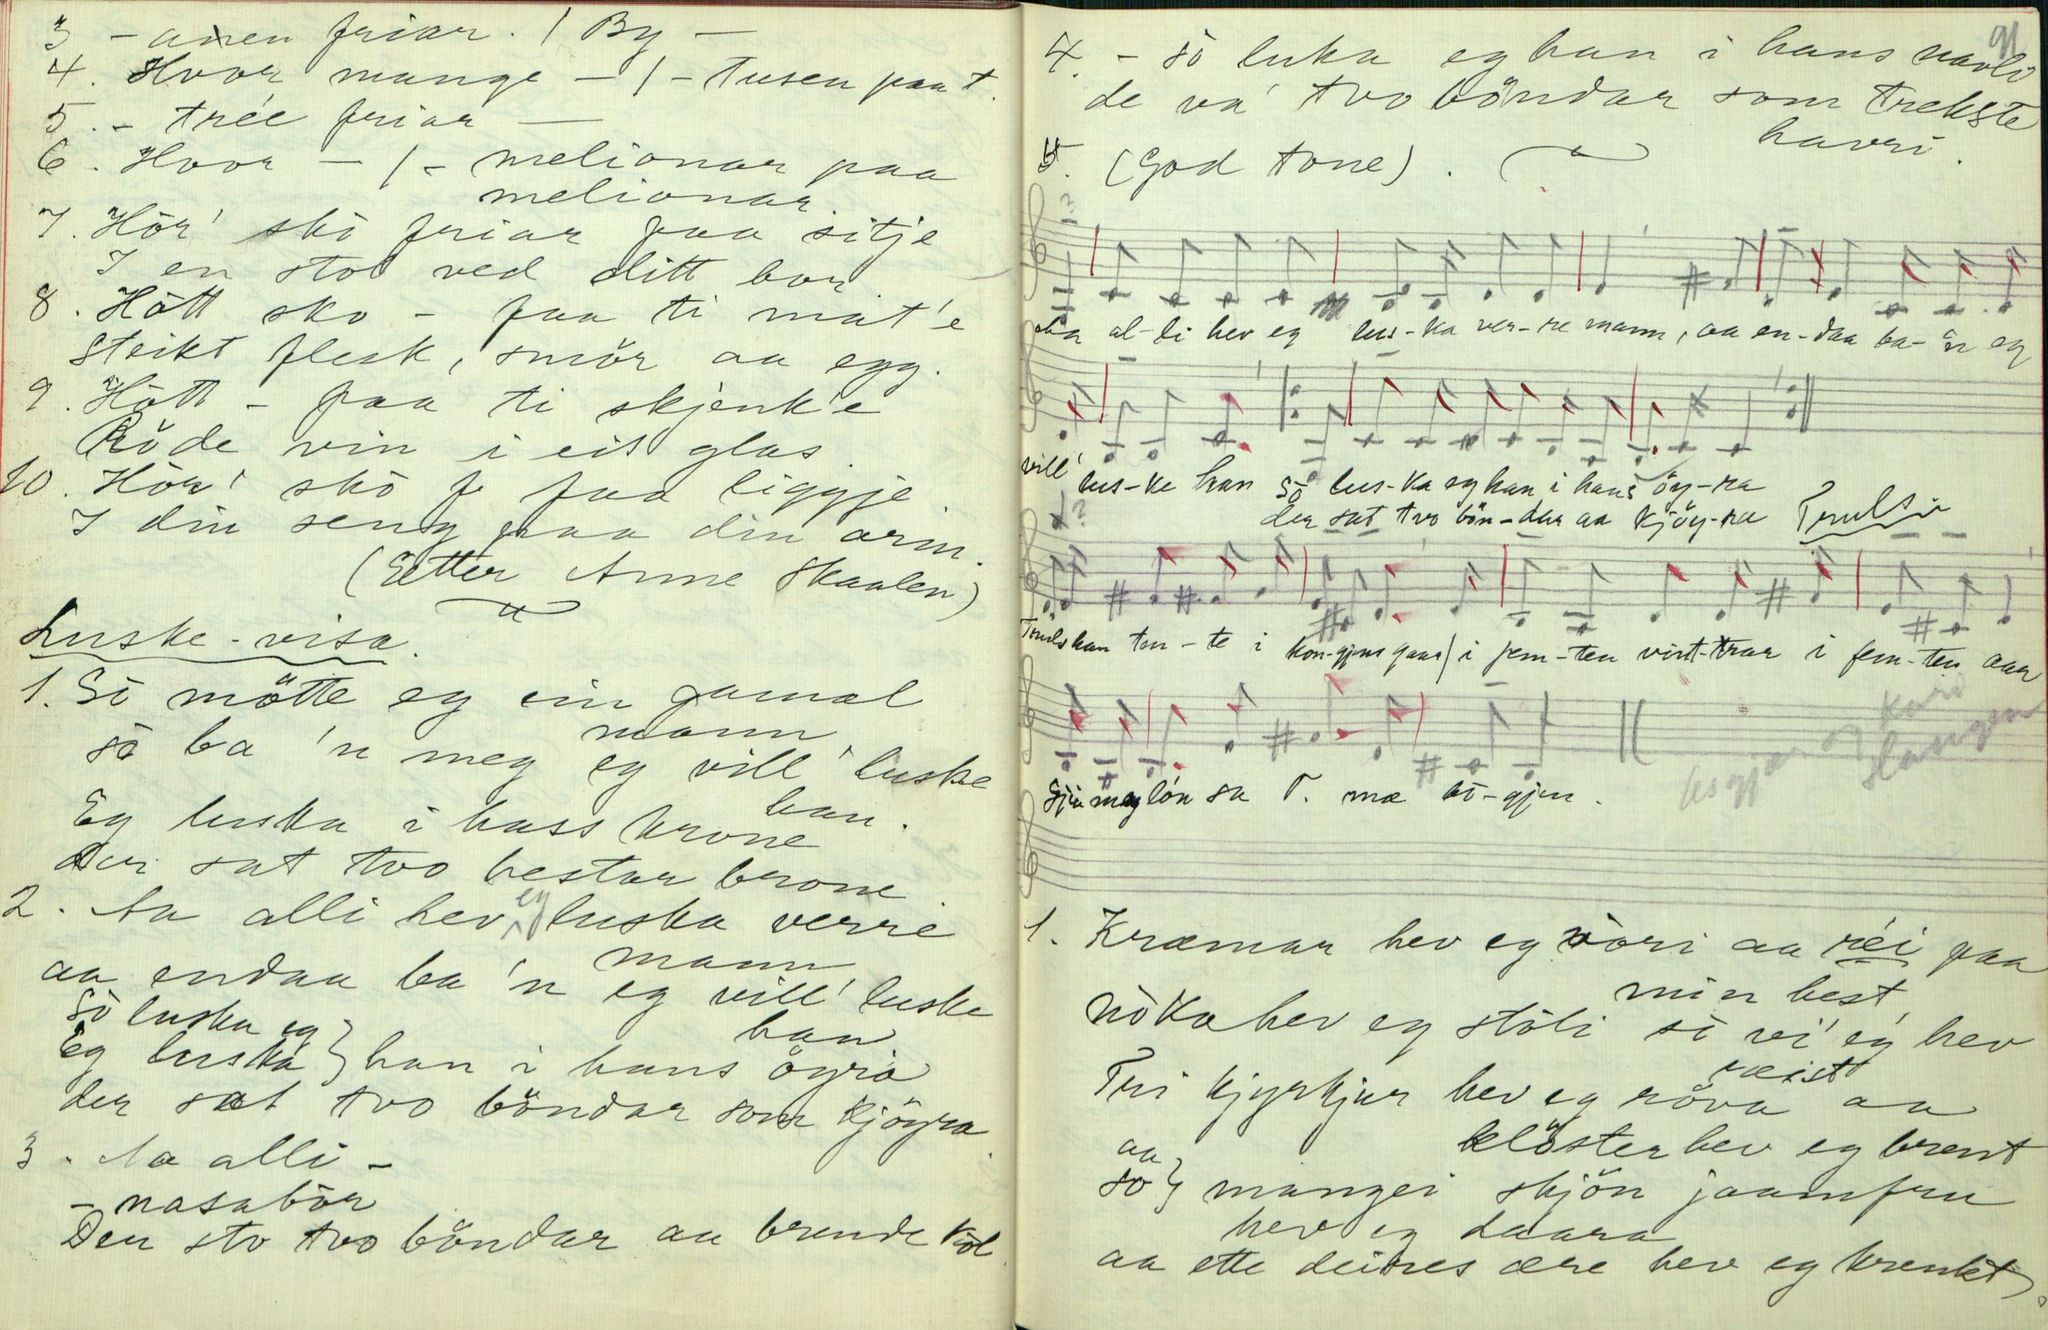 3 - anen friar. / By -
4. Hvor mange - / - tusen paa t.
5. - trée friar -
6. Hvor - / - melionar paa
melionar
7. Hör' skò friar faa sitje
I en stol ved ditt bor
8. Hått sko - faa ti mat'e
Steikt flesk, smör aa egg.
9. Hått - faa ti skjenk'e
Röde vin i eit glas
10. Hör' skò f faa liggje
I din seng paa din arm.
(Etter Anne Skaalen)
Luske-visa.
1. Sò mötte eg ein gamal
mann
sò ba 'n meg eg vill' luske
han.
Eg luska i hass krone
der sat tvo hestar brone
2. Aa alli hev eg luska verre
mann
aa endaa ba 'n eg vill' luske
han
Sò luska eg
Eg luska } han i hans öyra
der sat tvo böndar som kjöyra.
3. Aa alli -
- nasabòr
Der sto tvo böndar aa brende kòl.
91
4. - sò luka eg han i hans navli
de va' tvo böndar som trekste
havri.
5. (God tone).
Aa al-li hev eg lus-ka ver-re mann, aa en-daa ba-'n eg
vill' lus-ke han Sò lus-ka eg han i hans öy-ra
der sat tvo bön-dar aa kjöy-ra Trulsi
Truls han ten-te i kon-gjens gaar / i fem-ten vint-trar i fem-ten aar
Gjev meg lön sa T. mæ bò-gjen.
1. Kræmar hev eg vòri aa réi paa
min hest
Nòka hev eg stòli sò vi' eg hev
reist
Tri kjyrkjur hev eg röva aa
klöster hev eg brent
aa
sò } mangei skjön jaamfru
hev eg daara
aa ette deires ære hev eg krenkt.